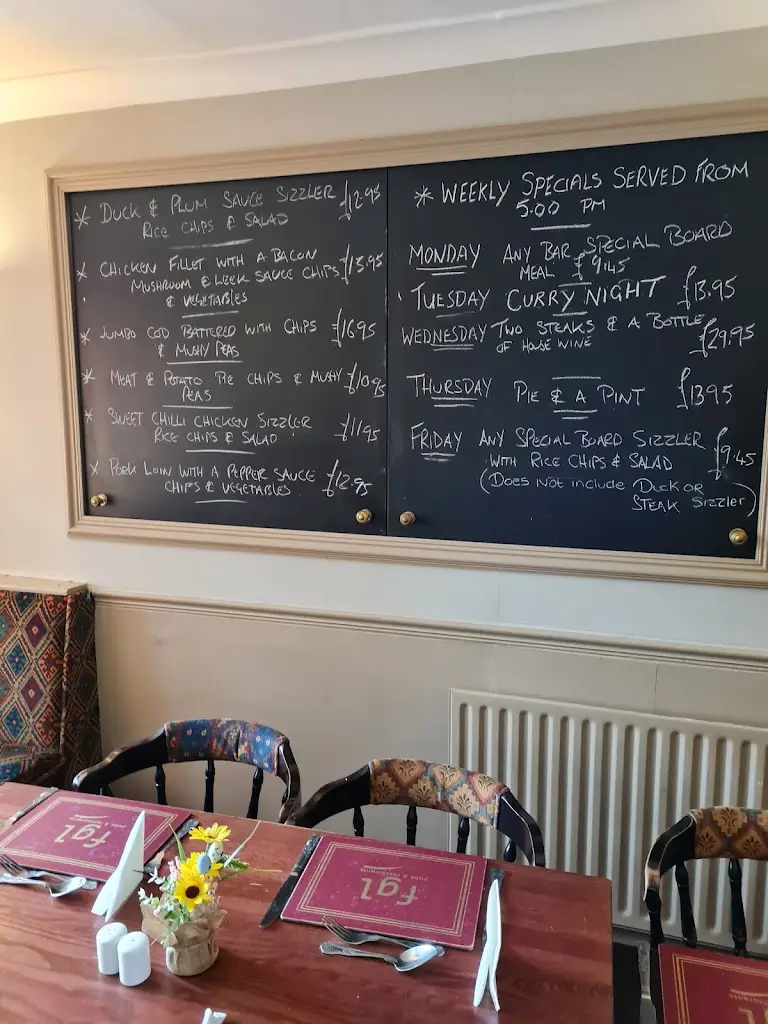 * DUCK & PLUM SAUCE SIZZLER £12.95
RICE CHIPS & SALAD
* CHICKEN FILLET WITH A BACON
MUSHROOM & LEEK SAUCE CHIPS £13.95
& VEGETABLES
* JUMBO COD BATTERED WITH CHIPS £16.95
& MUSHY PEAS
* MEAT & POTATO PIE CHIPS & MUSHY £10.95
PEAS
* SWEET CHILLI CHICKEN SIZZLER
RICE CHIPS & SALAD £11.95
* PORK LOIN WITH A PEPPER SAUCE
CHIPS & VEGETABLES £12.95
* WEEKLY SPECIALS SERVED FROM
5:00 PM
MONDAY ANY BAR SPECIAL BOARD
MEAL £9.45
TUESDAY CURRY NIGHT £13.95
WEDNESDAY TWO STEAKS & A BOTTLE
OF HOUSE WINE £29.95
THURSDAY PIE & A PINT £13.95
FRIDAY ANY SPECIAL BOARD SIZZLER
WITH RICE CHIPS & SALAD £9.45
(DOES NOT INCLUDE DUCK OR
STEAK SIZZLER)
fgl
pubs & restaurants
fgl
pubs & restaurants
restaurants